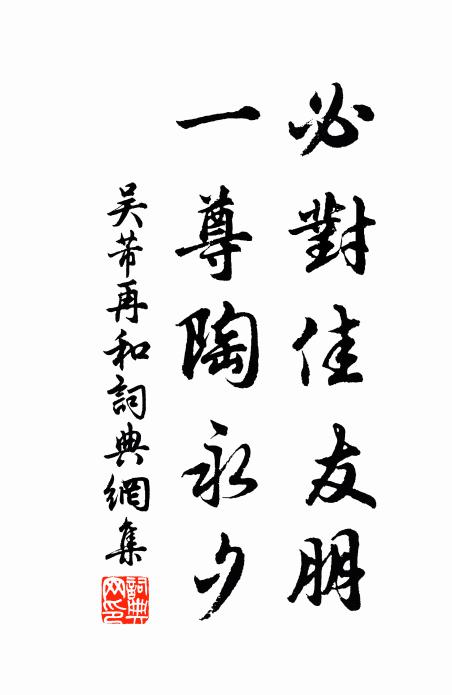 必對佳友朋
一尊陶永夕
吴芾再和詞典網集
詞典網印